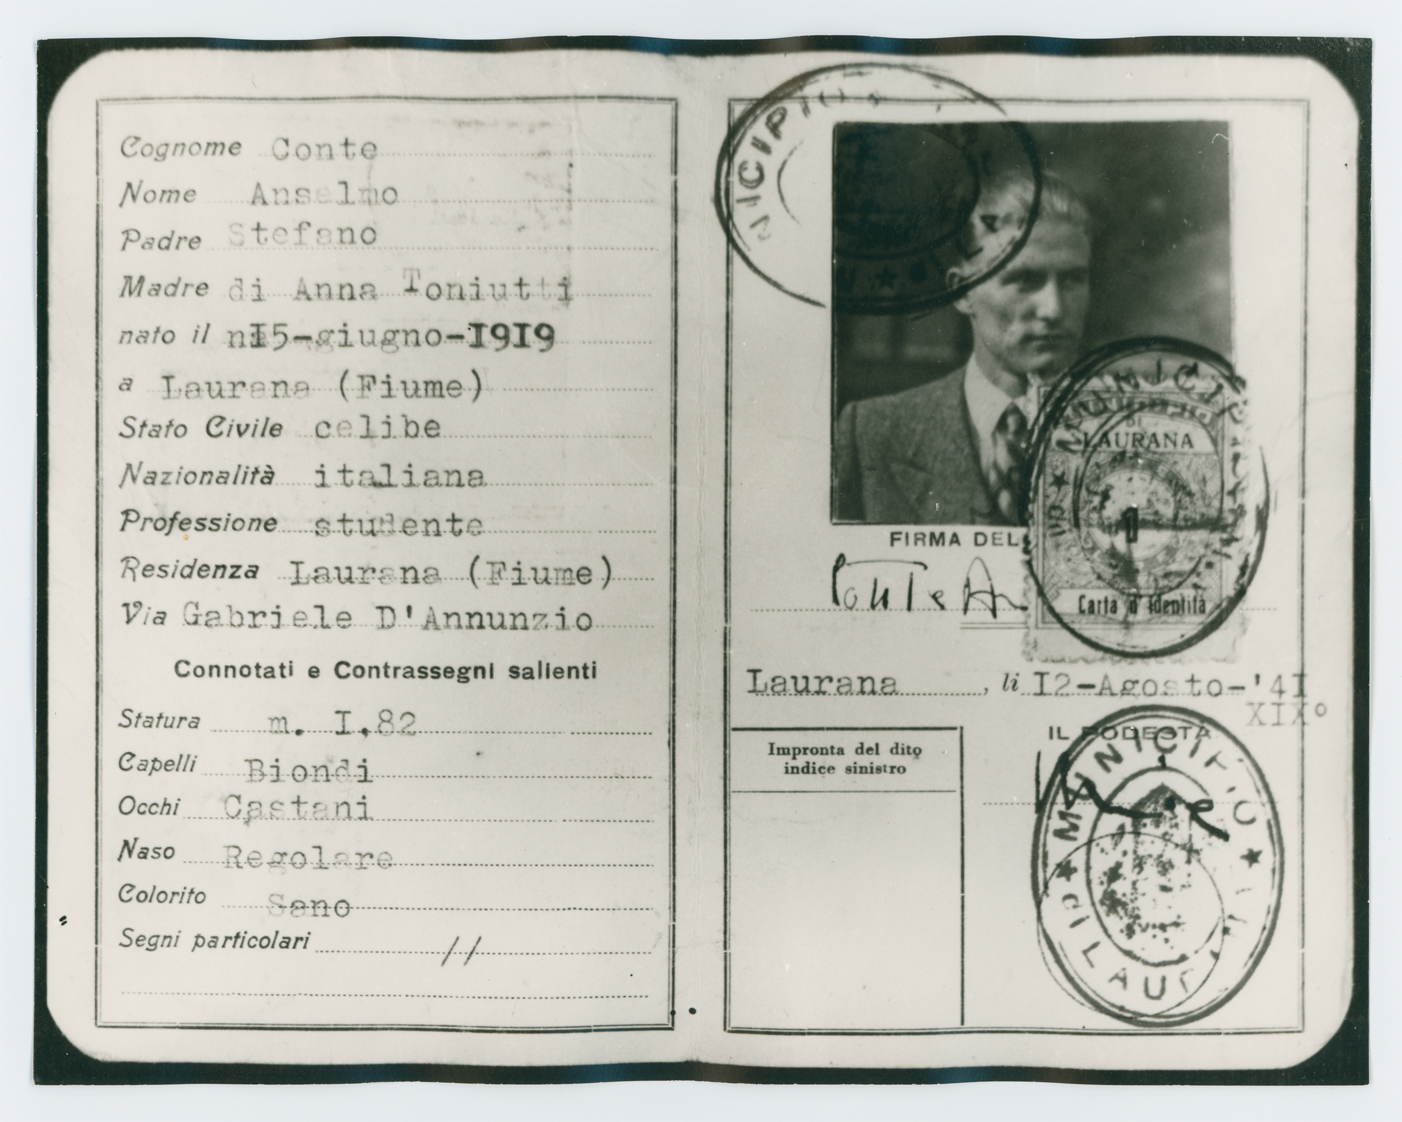 Cognome Conte
Nome Anselmo
Padre Stefano
Madre di Anna Toniutti
nato il n15-giugno-1919
a Laurana (Fiume)
Stato Civile celibe
Nazionalità italiana
Professione studente
Residenza Laurana (Fiume)
Via Gabriele D'Annunzio
Connotati e Contrassegni salienti
Statura m. I.82
Capelli Biondi
Occhi Castani
Naso Regolare
Colorito Sano
Segni particolari //
NICIPIO
MUNICIPIO
DI
LAURANA
1
Carta d'Identità
FIRMA DEL
Conte An
Laurana, li I2-Agosto-'4I
XIX°
IL PODESTA
Impronta del dito
indice sinistro
MUNICIPIO
DI LAU